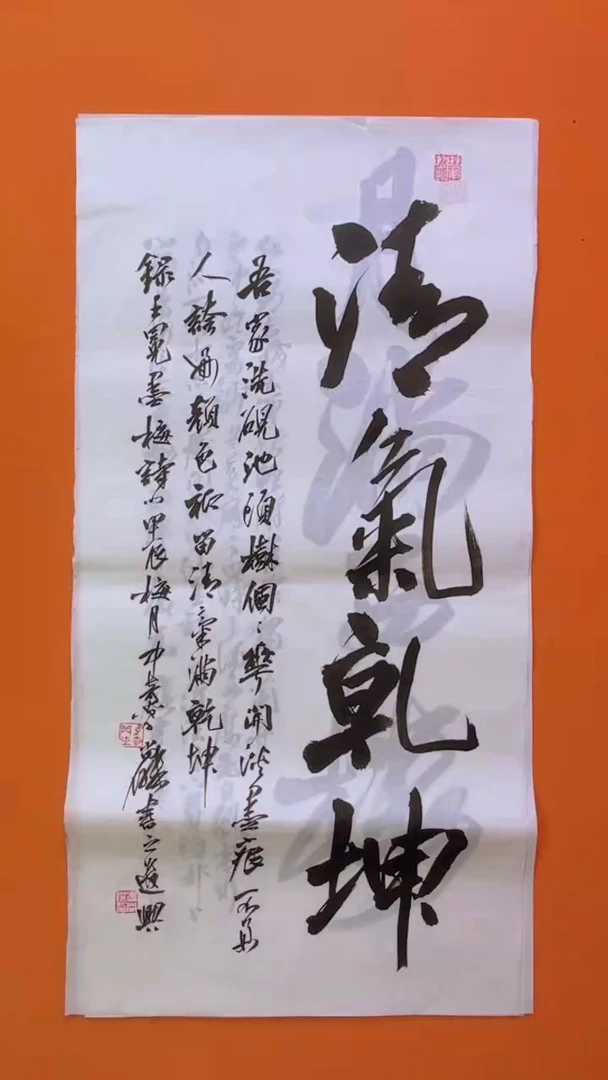 清氣乾坤
吾家洗硯池頭樹個〻華開淡墨痕不要
人誇好顏色祇留清氣滿乾坤
錄王冕墨梅詩甲辰梅月書之遣興